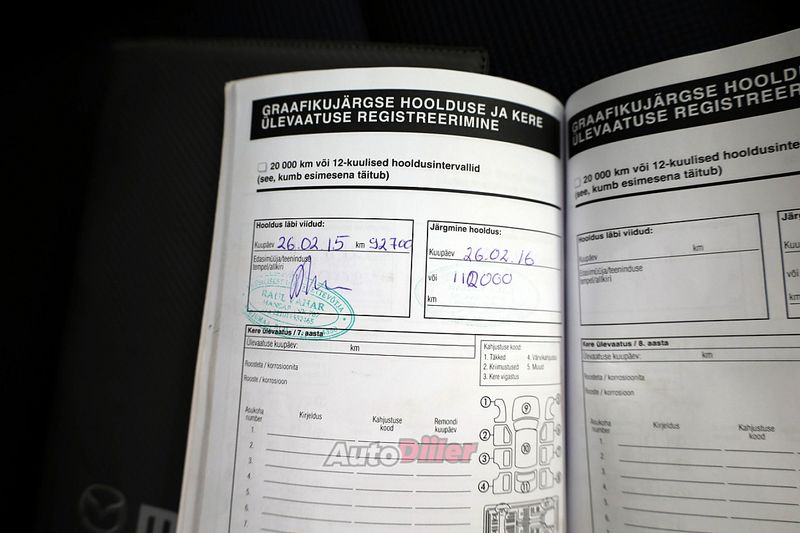 GRAAFIKUJÄRGSE HOOLDUSE JA KERE
ÜLEVAATUSE REGISTREERIMINE
20 000 km või 12-kuulised hooldusintervallid
(see, kumb esimesena täitub)
Hooldus läbi viidud:
Kuupäev 26.02.15 km 92700
Edasimüüja/teeninduse
tempel/allkiri
RAUL
Järgmine hooldus:
Kuupäev 26.02.16
või 112000
km
Kere ülevaatus / 7. aasta
Ülevaatuse kuupäev: km
Roosteta / korrosioonita
Rooste / korrosioon
Kahjustuse kood:
1. Täkked 4. Värvikahjustus
2. Kriimustused 5. Muud
3. Kere vigastus
Asukoha number Kirjeldus Kahjustuse kood Remondi kuupäev
1.
2.
3.
4.
5.
6.
7.
8.
1 2 3 4 9 10 11
AutoDiller
GRAAFIKUJÄRGSE HOOLD
ÜLEVAATUSE REGISTREER
20 000 km või 12-kuulised hooldusintervallid
(see, kumb esimesena täitub)
Hooldus läbi viidud:
Kuupäev km
Edasimüüja/teeninduse
tempel/allkiri
Kere ülevaatus / 8. aasta
Ülevaatuse kuupäev: km
Roosteta / korrosioonita
Rooste / korrosioon
Asukoha number Kirjeldus Kahjustuse kood
1.
2.
3.
4.
5.
6.
7.